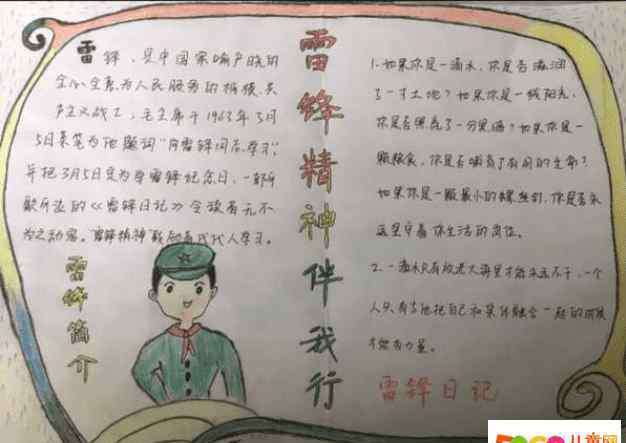 雷锋，是中国家喻户晓的
全心全意为人民服务的楷模，共
产主义战士，毛主席于1963年3月
5日亲笔为他题词“向雷锋同志学习”，
并把3月5日定为学雷锋纪念日，一部
所的《雷锋日记》令读者无不
为之动容。雷锋精神着代代人学习。
雷锋简介
雷锋精神伴我行
1.如果你是一滴水，你是否滋润
了一寸土地？如果你是一线阳光，
你是否照亮了一分黑暗？如果你是一
颗粮食，你是否哺育了有用的生命？
如果你是一颗最小的螺丝钉，你是否永
远坚守着你生活的岗位。
2.一滴水只有放进大海里才能永远不干，一个
人只有当他把自己和集体融合一起的时候
才能有力量。
雷锋日记
儿童网